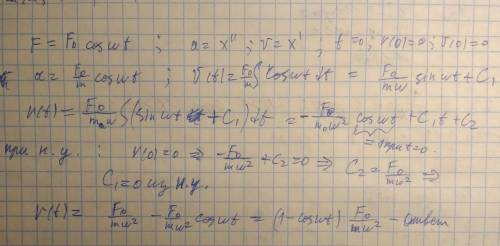 F = F₀ cos ωt ; a = x'' ; v = x' ; t=0, r(0)=0 ; v(0)=0
a = F₀/m cos ωt ; v(t) = F₀/m ∫ cos ωt dt = F₀/mω sin ωt + C₁
r(t) = F₀/mω ∫(sin ωt + C₁) dt = - F₀/mω² cos ωt + C₁t + C₂
= 1 при t=0
при н.у. : r(0)=0 ⇒ - F₀/mω² + C₂ = 0 ⇒ C₂ = F₀/mω² ⇒
C₁ = 0 из н.у.
r(t) = F₀/mω² - F₀/mω² cos ωt = (1 - cos ωt) F₀/mω² - ответ